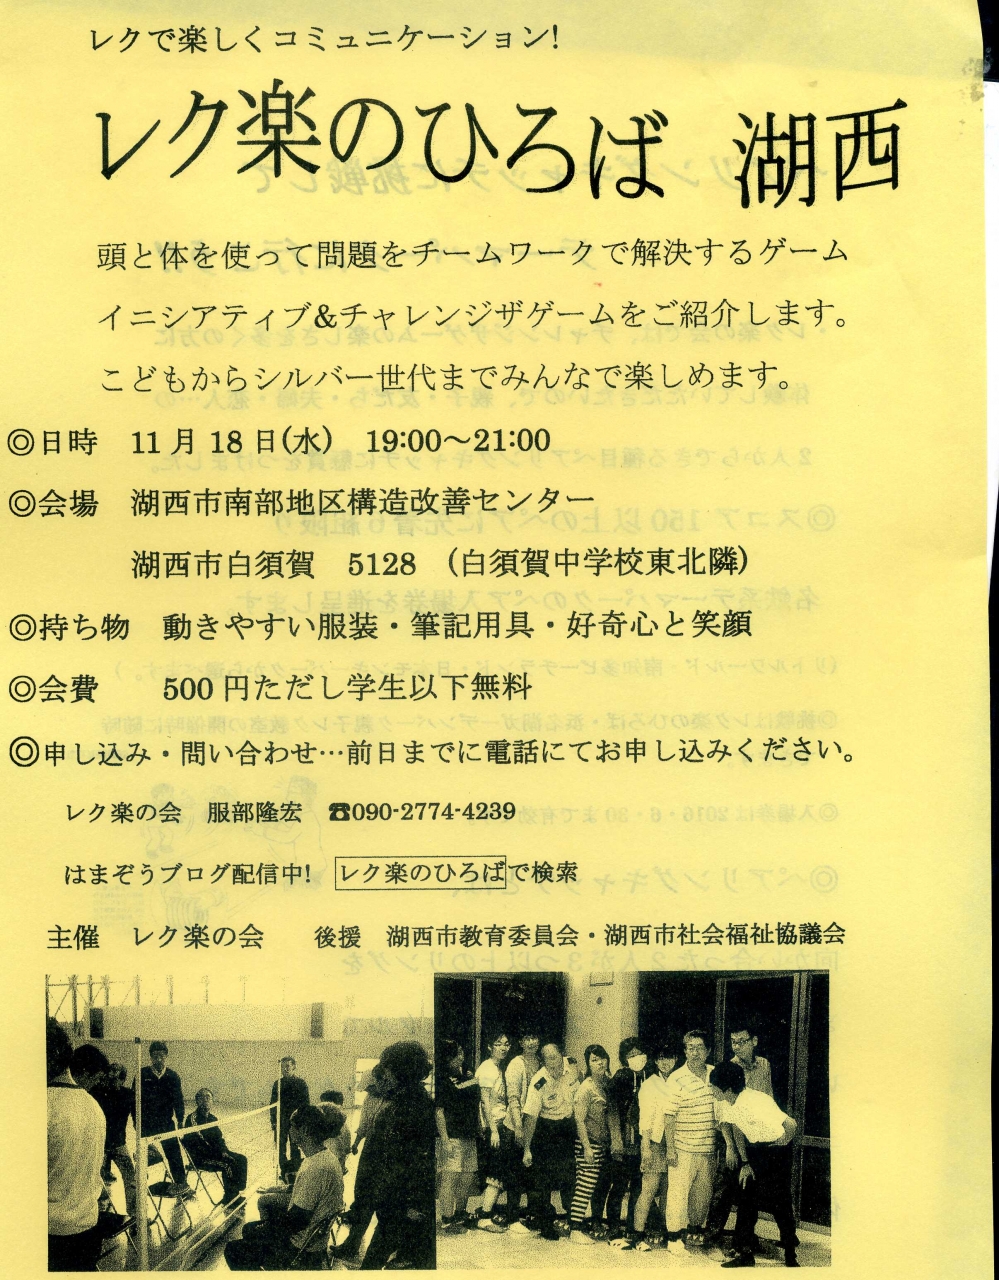 レクで楽しくコミュニケーション!
レク楽のひろば 湖西
頭と体を使って問題をチームワークで解決するゲーム
イニシアティブ&チャレンジザゲームをご紹介します。
こどもからシルバー世代までみんなで楽しめます。
◎日時 11月18日(水) 19:00～21:00
◎会場 湖西市南部地区構造改善センター
湖西市白須賀 5128 (白須賀中学校東北隣)
◎持ち物 動きやすい服装・筆記用具・好奇心と笑顔
◎会費 500円ただし学生以下無料
◎申し込み・問い合わせ…前日までに電話にてお申し込みください。
レク楽の会 服部隆宏 ☎090-2774-4239
はまぞうブログ配信中! レク楽のひろばで検索
主催 レク楽の会 後援 湖西市教育委員会・湖西市社会福祉協議会